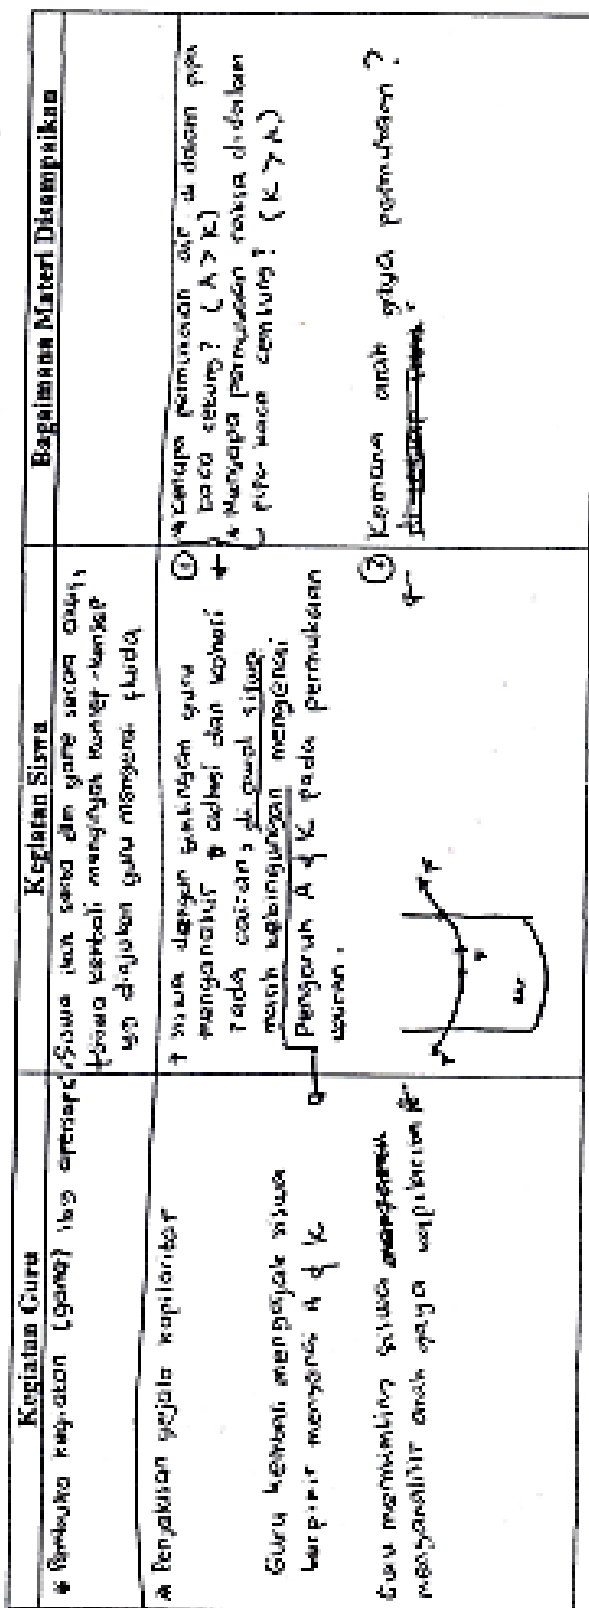 Kegiatan Guru
Kegiatan Siswa
Bagaimana Materi Disampaikan
* Pembuka kegiatan (game) ttg apersepsi
Siswa ikut serta dlm game secara
Siswa kembali mengingat konsep-konsep
yg diajukan guru mengenai fluida
* Penjelasan gejala kapilaritas
Guru kembali mengajak siswa
berpikir mengenai A & K
Guru membimbing siswa
menganalisis arah gaya
siswa dengan bimbingan guru
menganalisis adhesi dan kohesi
pada cairan, di awal siswa
masih kebingungan mengenai
Pengaruh A & K pada permukaan
cairan.
F
F
F
air
① * Kenapa permukaan air di dalam pipa
kaca cekung? (A > K)
* Mengapa permukaan raksa didalam
pipa kaca cembung? (K > A)
② Kemana arah gaya permukaan?